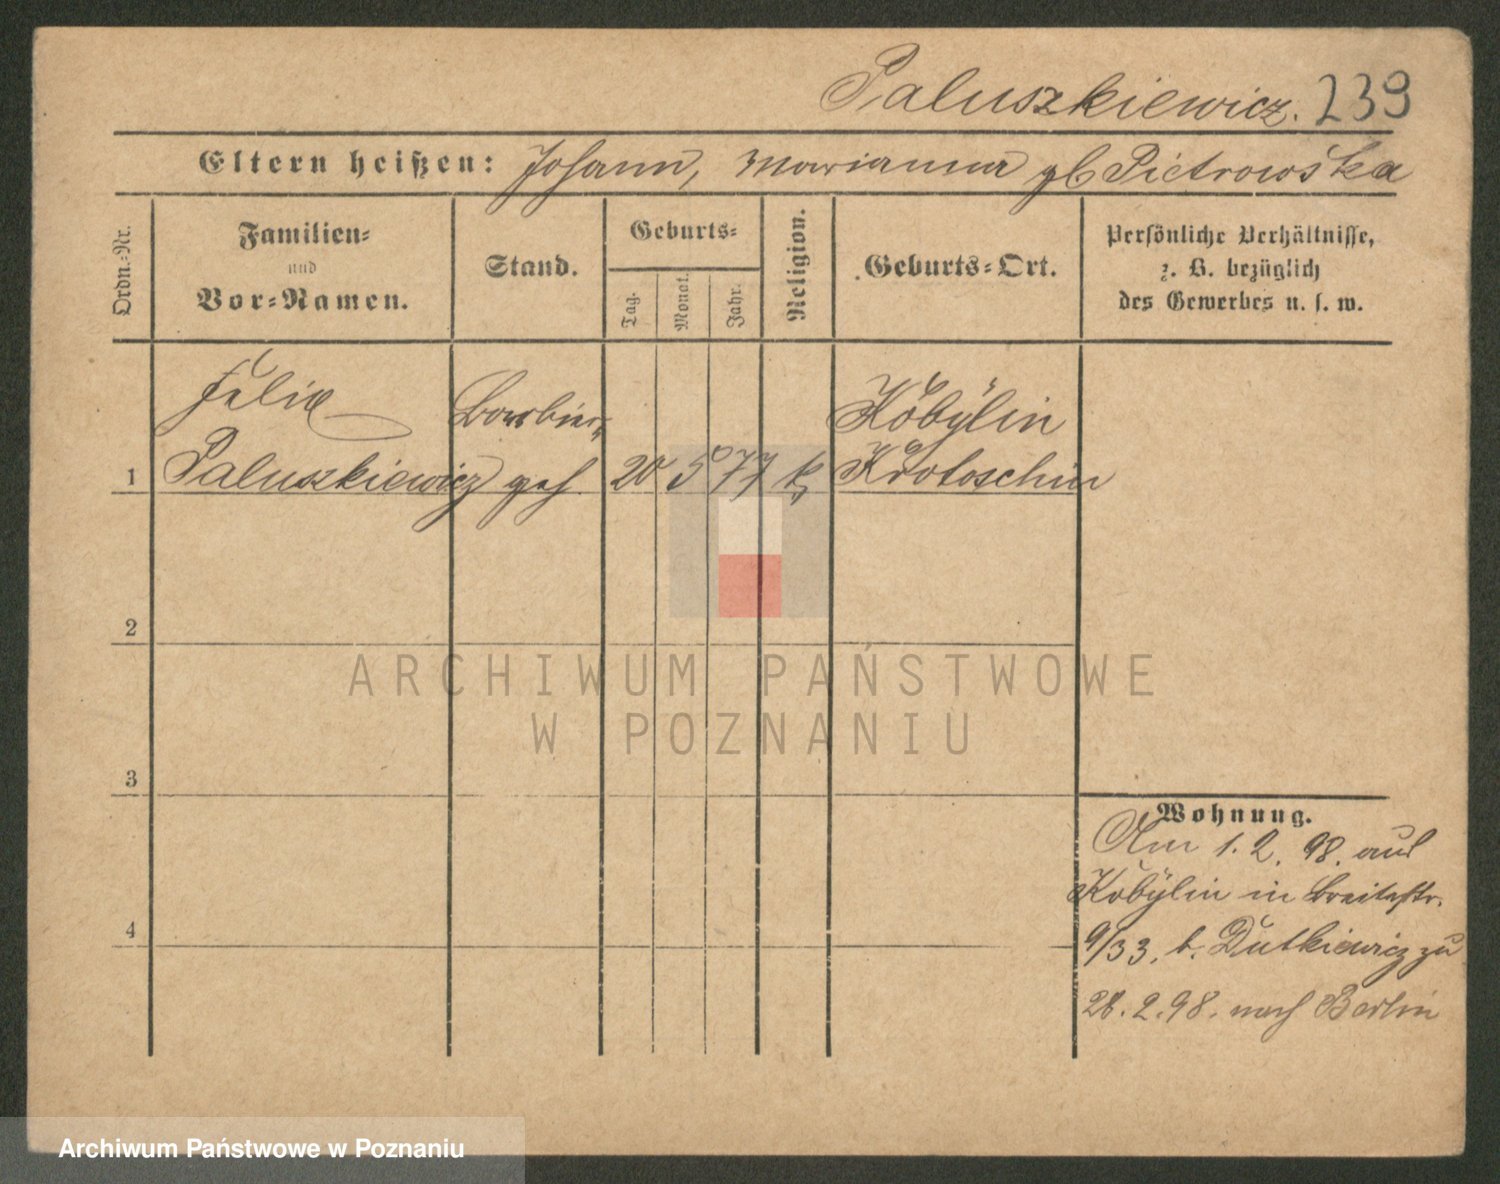 Paluszkiewicz. 239
Eltern heißen: Johann, Marianna gb Pietrowska
Ordn.-Nr.
Familien-
und
Vor-Namen.
Stand.
Geburts-
Tag.
Monat.
Jahr.
Religion.
Geburts-Ort.
Persönliche Verhältnisse,
z. B. bezüglich
des Gewerbes u. s. w.
Felix Barbier- Kobylin
1 Paluszkiewicz geh. 20 5 77 k Krotoschin
2
ARCHIWUM PAŃSTWOWE
W POZNANIU
3
Wohnung.
Am 1. 2. 98. aus
Kobylin in Breitestr.
4
9/33. b. Dutkiewicz zu
28. 2. 98. nach Berlin
Archiwum Państwowe w Poznaniu